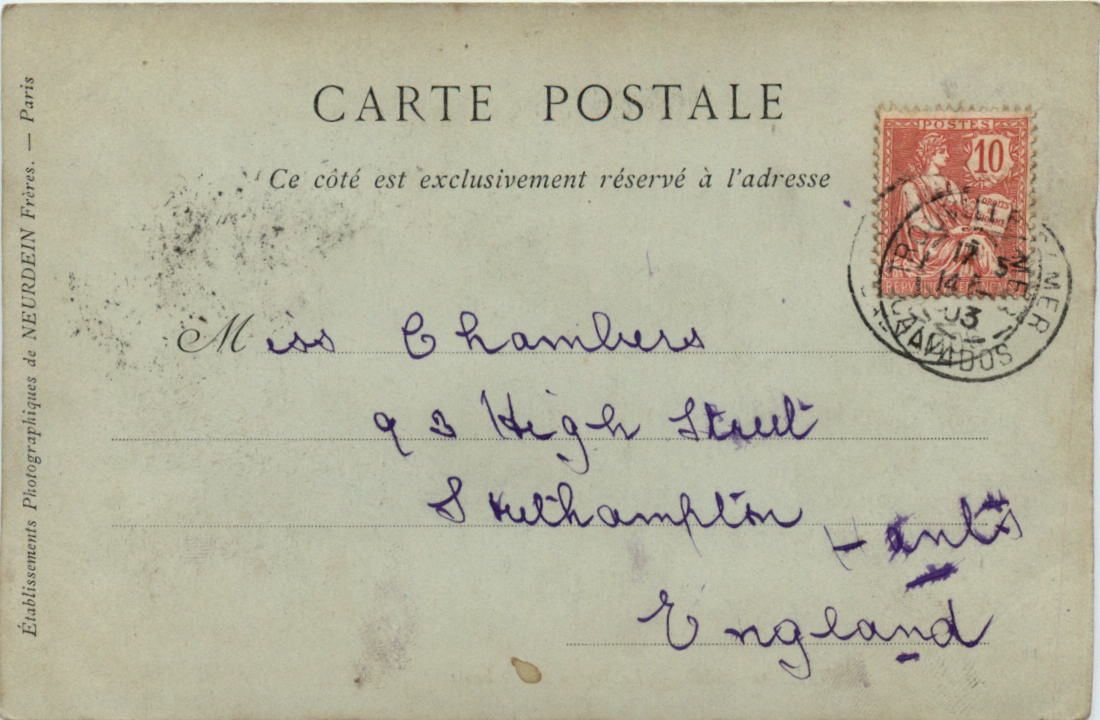 CARTE POSTALE
Ce côté est exclusivement réservé à l'adresse
POSTES
10
DROITS
Miss Chambers
93 High Street
Southampton Hants
England
TROUVILLE S/ MER
17
03
CALVADOS
Établissements Photographiques de NEURDEIN Frères. — Paris